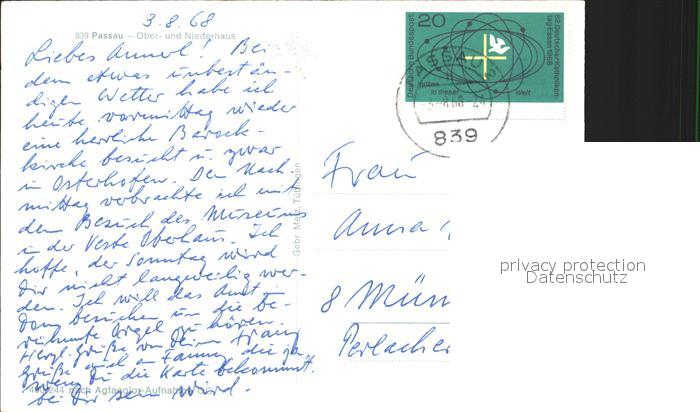 3.8.68
839 Passau – Ober- und Niederhaus
Liebes Annerl! Bei
dem etwas unbestän-
digen Wetter habe ich
heute vormittag wieder
eine herrliche Barock-
kirche besucht u. zwar
in Osterhofen. Den Nach-
mittag verbrachte ich mit
dem Besuch des Museums
in der Veste Oberhaus. Ich
hoffe, der Sonntag wird
Dir nicht langweilig wer-
den. Ich will das Amt im
Dom besuchen um die be-
rühmte Orgel zu hören.
Herzl. Grüße von Deinem Franz
Grüße auch an Fanny, die ja
wenn Du die Karte bekommst,
bei Dir sein wird.
244 nach Agfacolor-Aufnahme
Gebr. Metz, Tübingen
20
Deutsche Bundespost
82. Deutscher Katholiken-
tag Essen 1968
Mitten
in dieser
Welt
PASSAU
839
Frau
Anna
8 Mün
Perlacher
privacy protection
Datenschutz